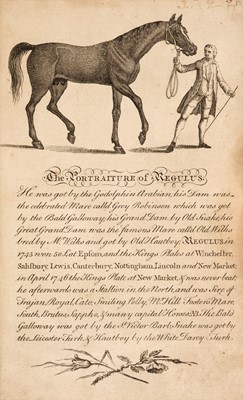 The PORTRAITURE of REGULUS.
He was got by the Godolphin Arabian, his Dam was
the celebrated Mare call'd Grey Robinson which was got
by the Bald Galloway, his Grand Dam by Old Snake, his
Great Grand Dam was the famous Mare call'd Old Wilkes
bred by Mr. Wilks and got by Old Hautboy; REGULUS in
1745 won 50 L at Epsom, and the Kings Plates at Winchester,
Salisbury, Lewis, Canterbury, Nottingham, Lincoln and New Market;
in April 1746 the Kings Plate at New Market, & was never beat
he afterwards was a Stallion in the North, and was Sire of
Trajan, Royal, Cato, Smiling Polly, Mr. Hill Fosters Mare,
South, Brutus, Sappho, & many capital Horses. NB. The Bald
Galloway was got by the St. Victor Barb, Snake was got by
the Leicester Turk, & Hautboy by the White Darcy Turk.